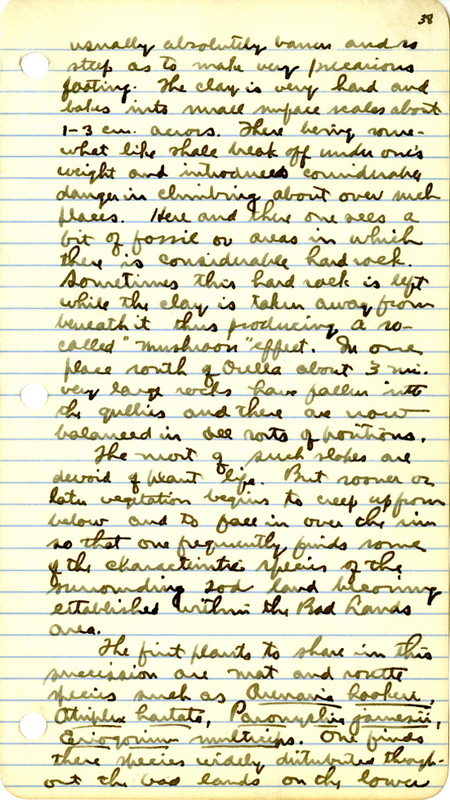 38
usually absolutely barren and so
steep as to make very precarious
footing. The clay is very hard and
bakes into small surface scales about
1-3 cm. across. These being some-
what like shale break off under one's
weight and introduces considerable
danger in climbing about over such
places. Here and there one sees a
bit of fossil or areas in which
there is considerable hard rock.
Sometimes this hard rock is left
while the clay is taken away from
beneath it thus producing a so-
called "mushroom" effect. In one
place north of Orella about 3 mi.
very large rocks have fallen into
the gullies and there are now
balanced in all sorts of positions.
The most of such slopes are
devoid of plant life. But sooner or
later vegetation begins to creep up from
below and to fall in over the rim
so that one frequently finds some
of the characteristic species of the
surrounding sod land becoming
established within the Bad Lands
area.
The first plants to share in this
succession are mat and rosette
species such as Arenaria hookeri,
Atriplex hastata, Paronychia jamesii,
Eriogonum multiceps. One finds
these species widely distributed through-
out the bad lands on the lower